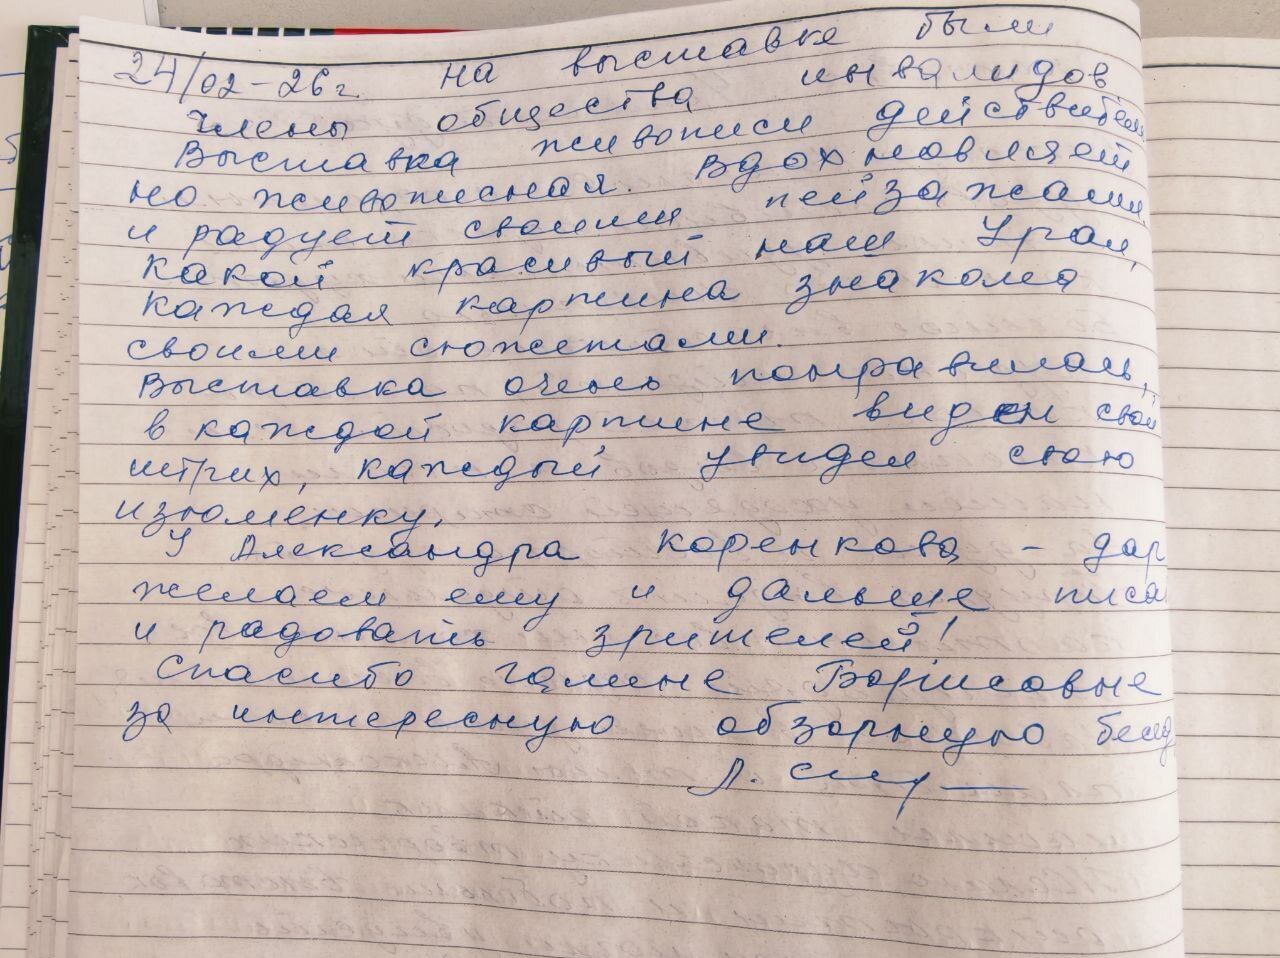 24/02-26г. на выставке были
члены общества инвалидов
Выставка живописи действитель
но живописная. Вдохновляет
и радует своими пейзажами.
Какой красивый наш Урал,
каждая картина знакома
своими сюжетами.
Выставка очень понравилась,
в каждой картине виден свой
штрих, каждый увидел свою
изюменку.
У Александра Коренкова - дар
желаем ему и дальше писа
и радовать зрителей!
Спасибо Галине Борисовне
за интересную обзорную бесед
Л.